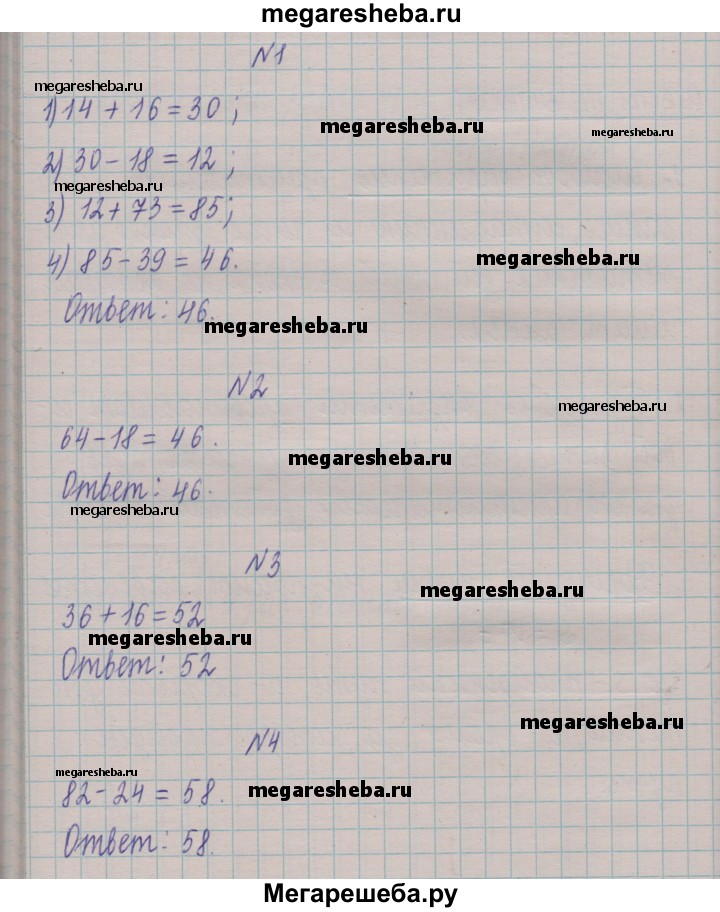 megaresheba.ru
N1
megaresheba.ru
1) 14 + 16 = 30 ;
megaresheba.ru
megaresheba.ru
2) 30 - 18 = 12 ;
megaresheba.ru
3) 12 + 73 = 85 ;
4) 85 - 39 = 46.
megaresheba.ru
Ответ: 46.
megaresheba.ru
N2
megaresheba.ru
64 - 18 = 46.
megaresheba.ru
Ответ: 46.
megaresheba.ru
N3
megaresheba.ru
36 + 16 = 52
megaresheba.ru
Ответ: 52
megaresheba.ru
N4
megaresheba.ru
82 - 24 = 58.
megaresheba.ru
Ответ: 58.
Мегарешеба.ру